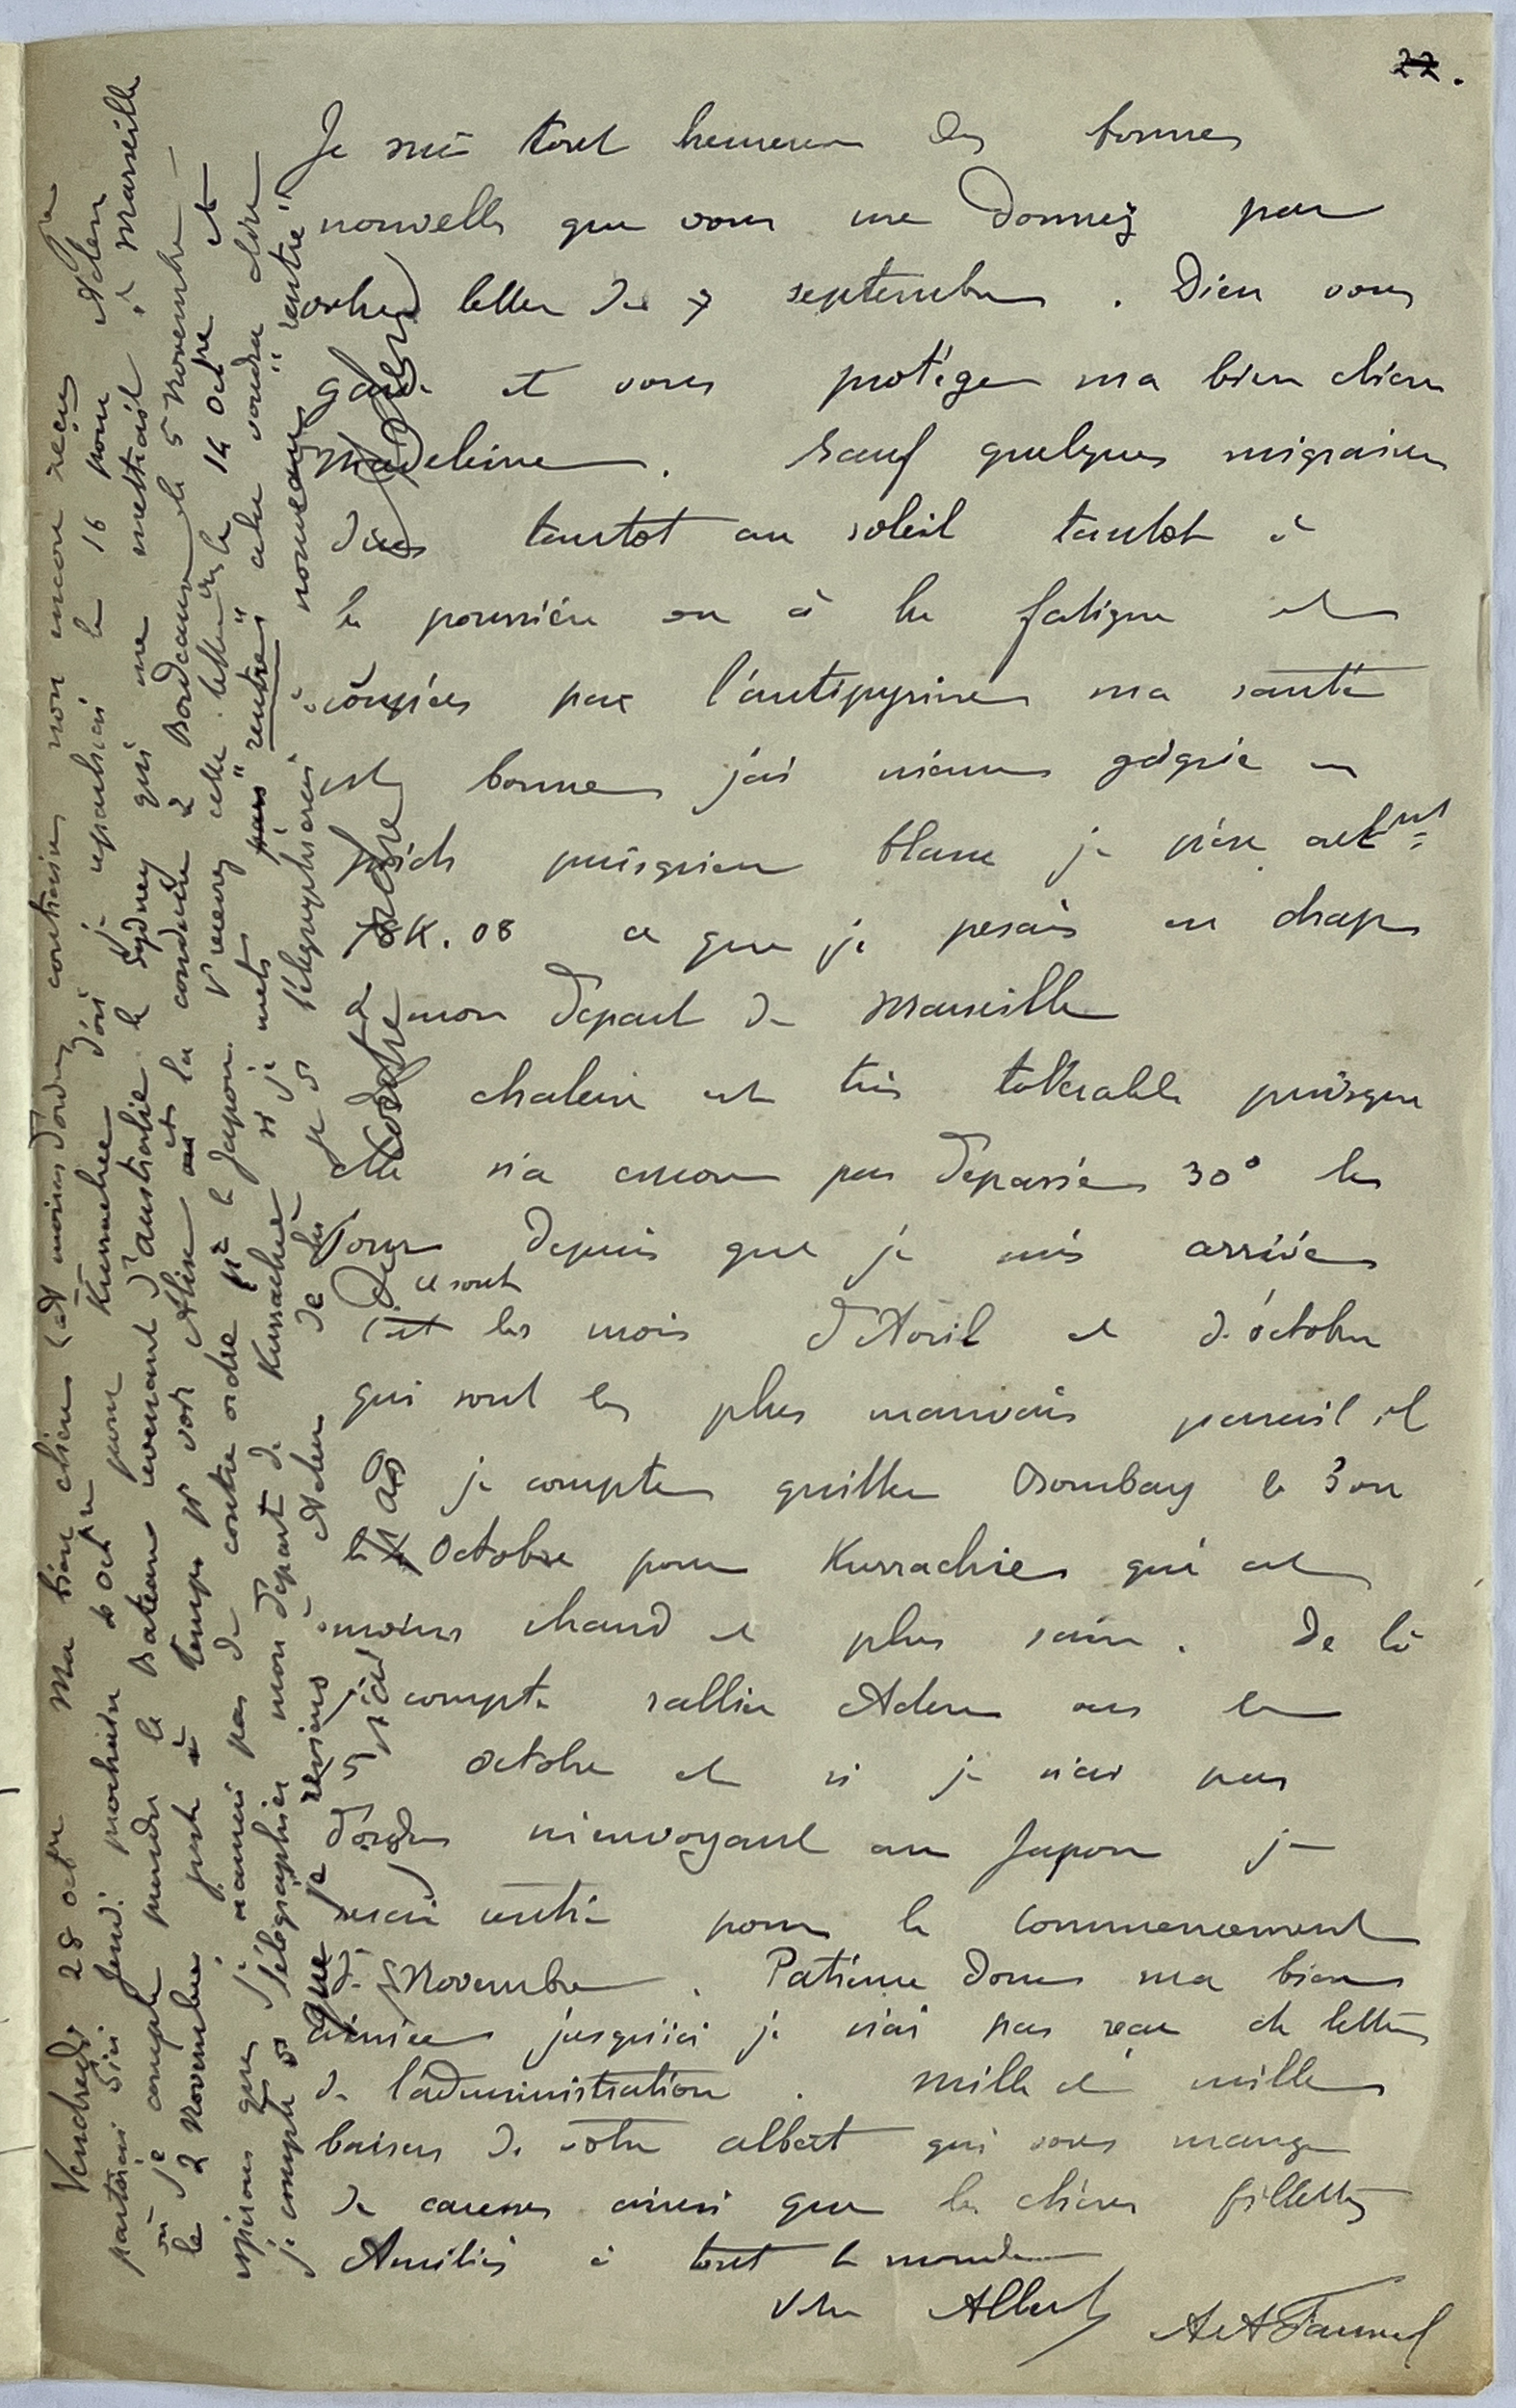 22.
Je suis tout heureux des bonnes
nouvelles que vous me donnez par
votre lettre du 7 septembre. Dieu vous
garde et vous protège ma bien chère
Madeleine. Sauf quelques migraines
dues tantot au soleil tantot à
la poussière ou à la fatigue et
coupées par l'antipyrine ma santé
est bonne j'ai même gagné en
poids puisqu'en blanc je pèse act^nt
78K.08 ce que je pesais en drap
à mon départ de Marseille
La chaleur est très tolérable puisque
elle n'a encore pas dépassé 30° le
jour depuis que je suis arrivé
ce sont
c'est les mois d'Avril et d'octobre
qui sont les plus mauvais parait il
je compte quitter Bombay le 3 ou
le 4 Octobre pour Kurrachée qui est
moins chaud et plus sain. De là
je compte rallier Aden vers le
15 octobre et si je n'ai pas
d'ordres m'envoyant au Japon je
serai rentré pour le commencement
de Novembre. Patience donc ma bien
aimée jusqu'ici je n'ai pas reçu de lettre
de l'administration. Mille et mille
baisers de votre albert qui vous mange
de caresses ainsi que les chères fillettes
Amitiés à tout le monde
Votre Albert A A Fauvel
Vendredi 28 Ma bien chère (A moins d'ordres contraires non encore reçus je
partirai d'ici Jeudi prochain 6 Oct^bre pour Kurrachee d'où je repartirai le 16 pour Aden
où je compte prendre le Bateau revenant d'australie le Sydney qui me mettrait à Marseille
le 2 Novembre juste à temps p^r voir Aline et la conduire à Bordeaux le 5 Novembre
espérons que je n'aurai pas de contre ordre p^r le Japon. V^s recevrez cette lettre le 14 Oct^bre et
je compte v^s télégraphier mon départ de Kurrachée si je mets "rentre" cela voudra dire
que je reviens Aden de là je v^s télégraphierai à nouveau "rentre"